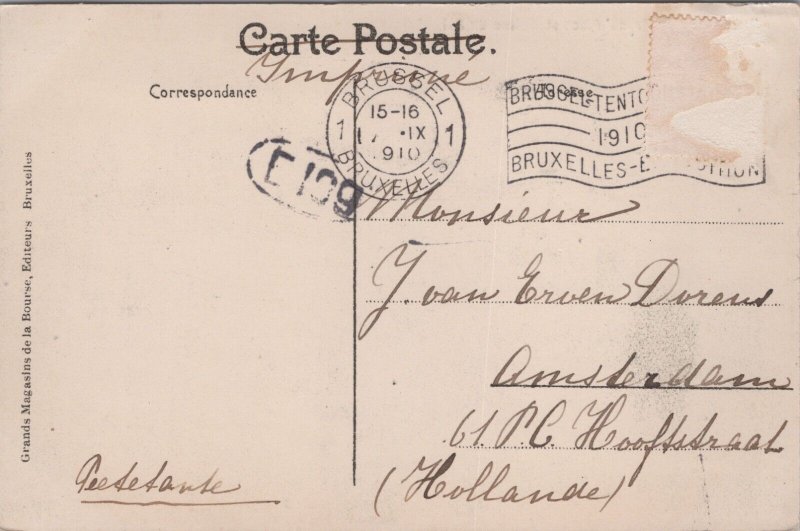 Carte Postale.
Imprimé
Correspondance
BRUSSEL
15-16
1 IX 1
1910
BRUXELLES
BRUSSEL-TENTO
1910
BRUXELLES-E
E 109
Monsieur
J. van Erven Dorens
Amsterdam
61 P.C. Hooftstraat
(Hollande)
Peetetante
Grands Magasins de la Bourse, Editeurs Bruxelles